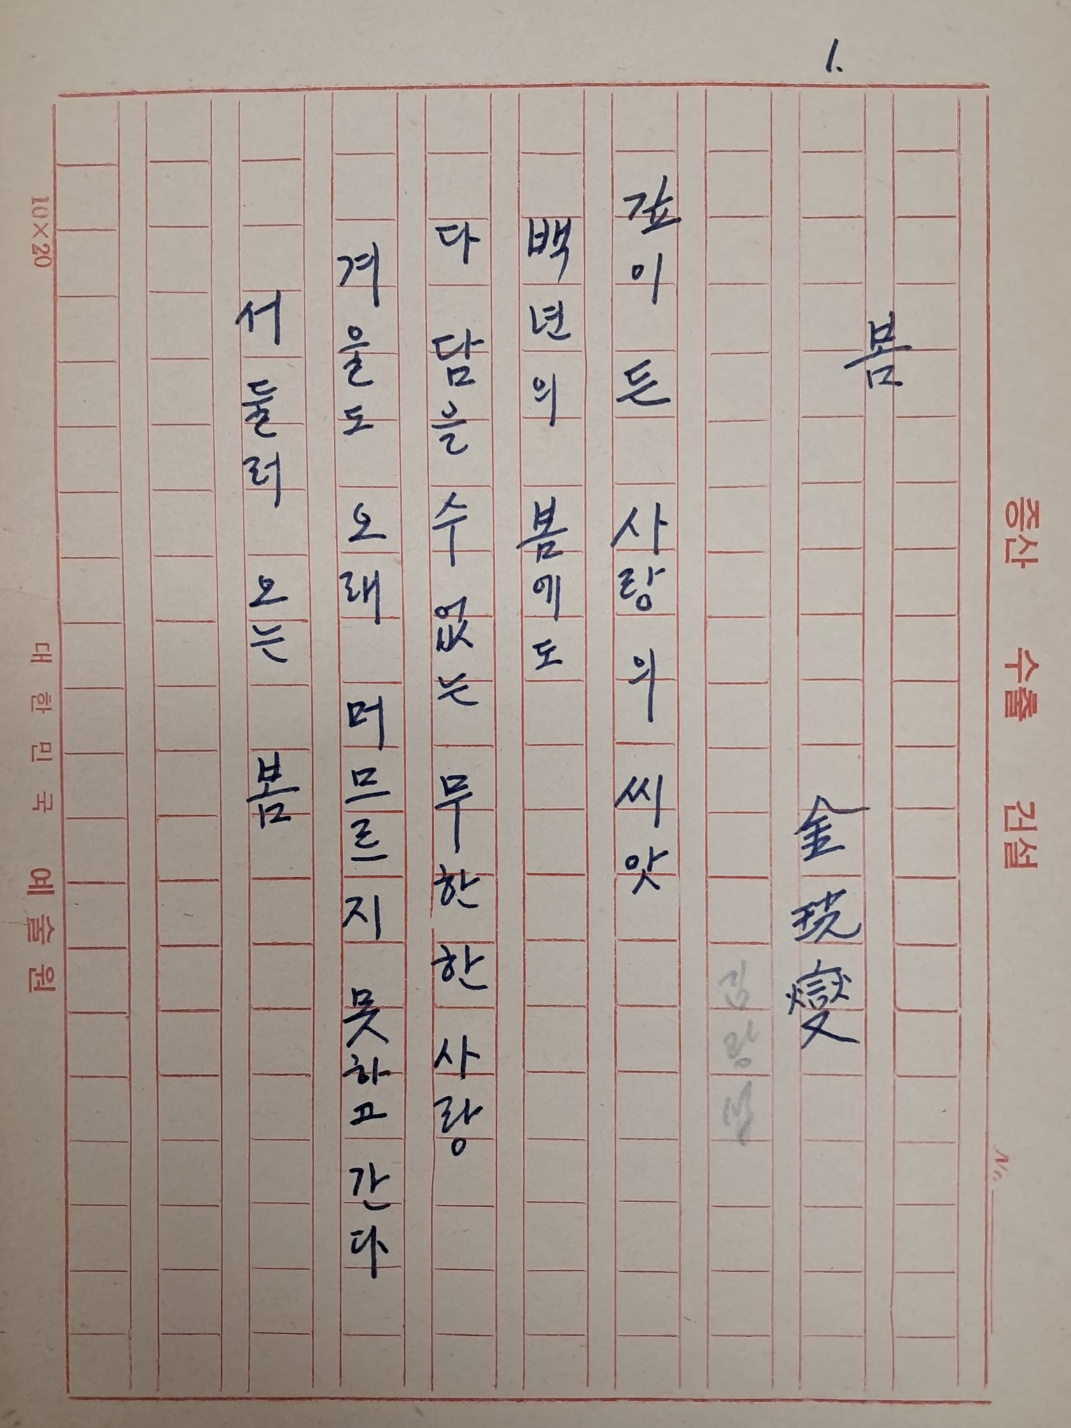 1.
증산 수출 건설
No.
봄
金珖燮
김광섭
깊이 든 사랑의 씨앗
백년의 봄에도
다 담을 수 없는 무한한 사랑
겨울도 오래 머므르지 못하고 간다
서둘러 오는 봄
10×20
대한민국 예술원